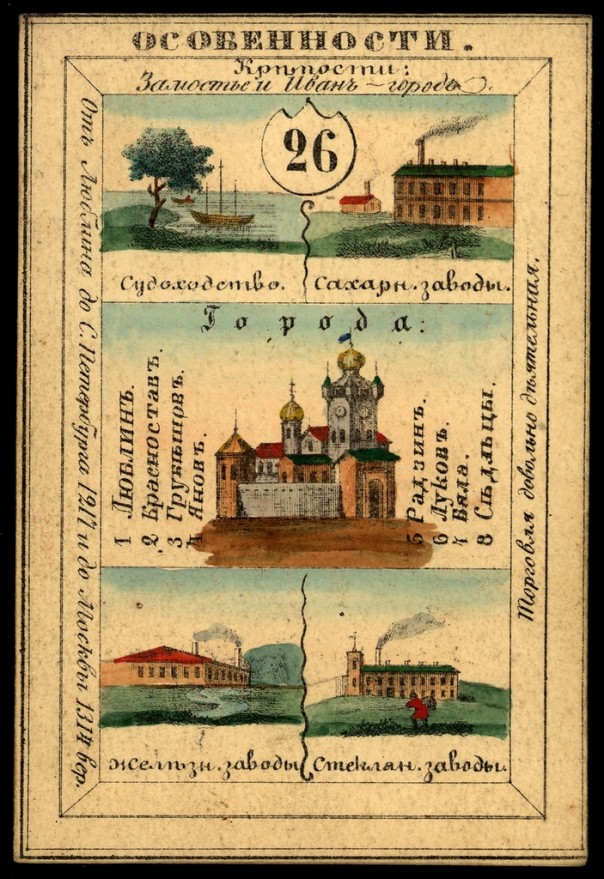 ОСОБЕННОСТИ.
Крѣпости:
Замостье и Иванъ-городъ.
26
Отъ Люблина до С. Петербурга 1217 и до Москвы 1314 вер.
Торговля довольно дѣятельная.
Судоходство.
Сахарн. заводы.
Города:
1 Люблинъ.
2 Красноставъ.
3 Грубѣшовъ.
4 Яновъ.
5 Радзинъ.
6 Луковъ.
7 Бяла.
8 Сѣдльцы.
Желѣзн. заводы
Стеклян. заводы.